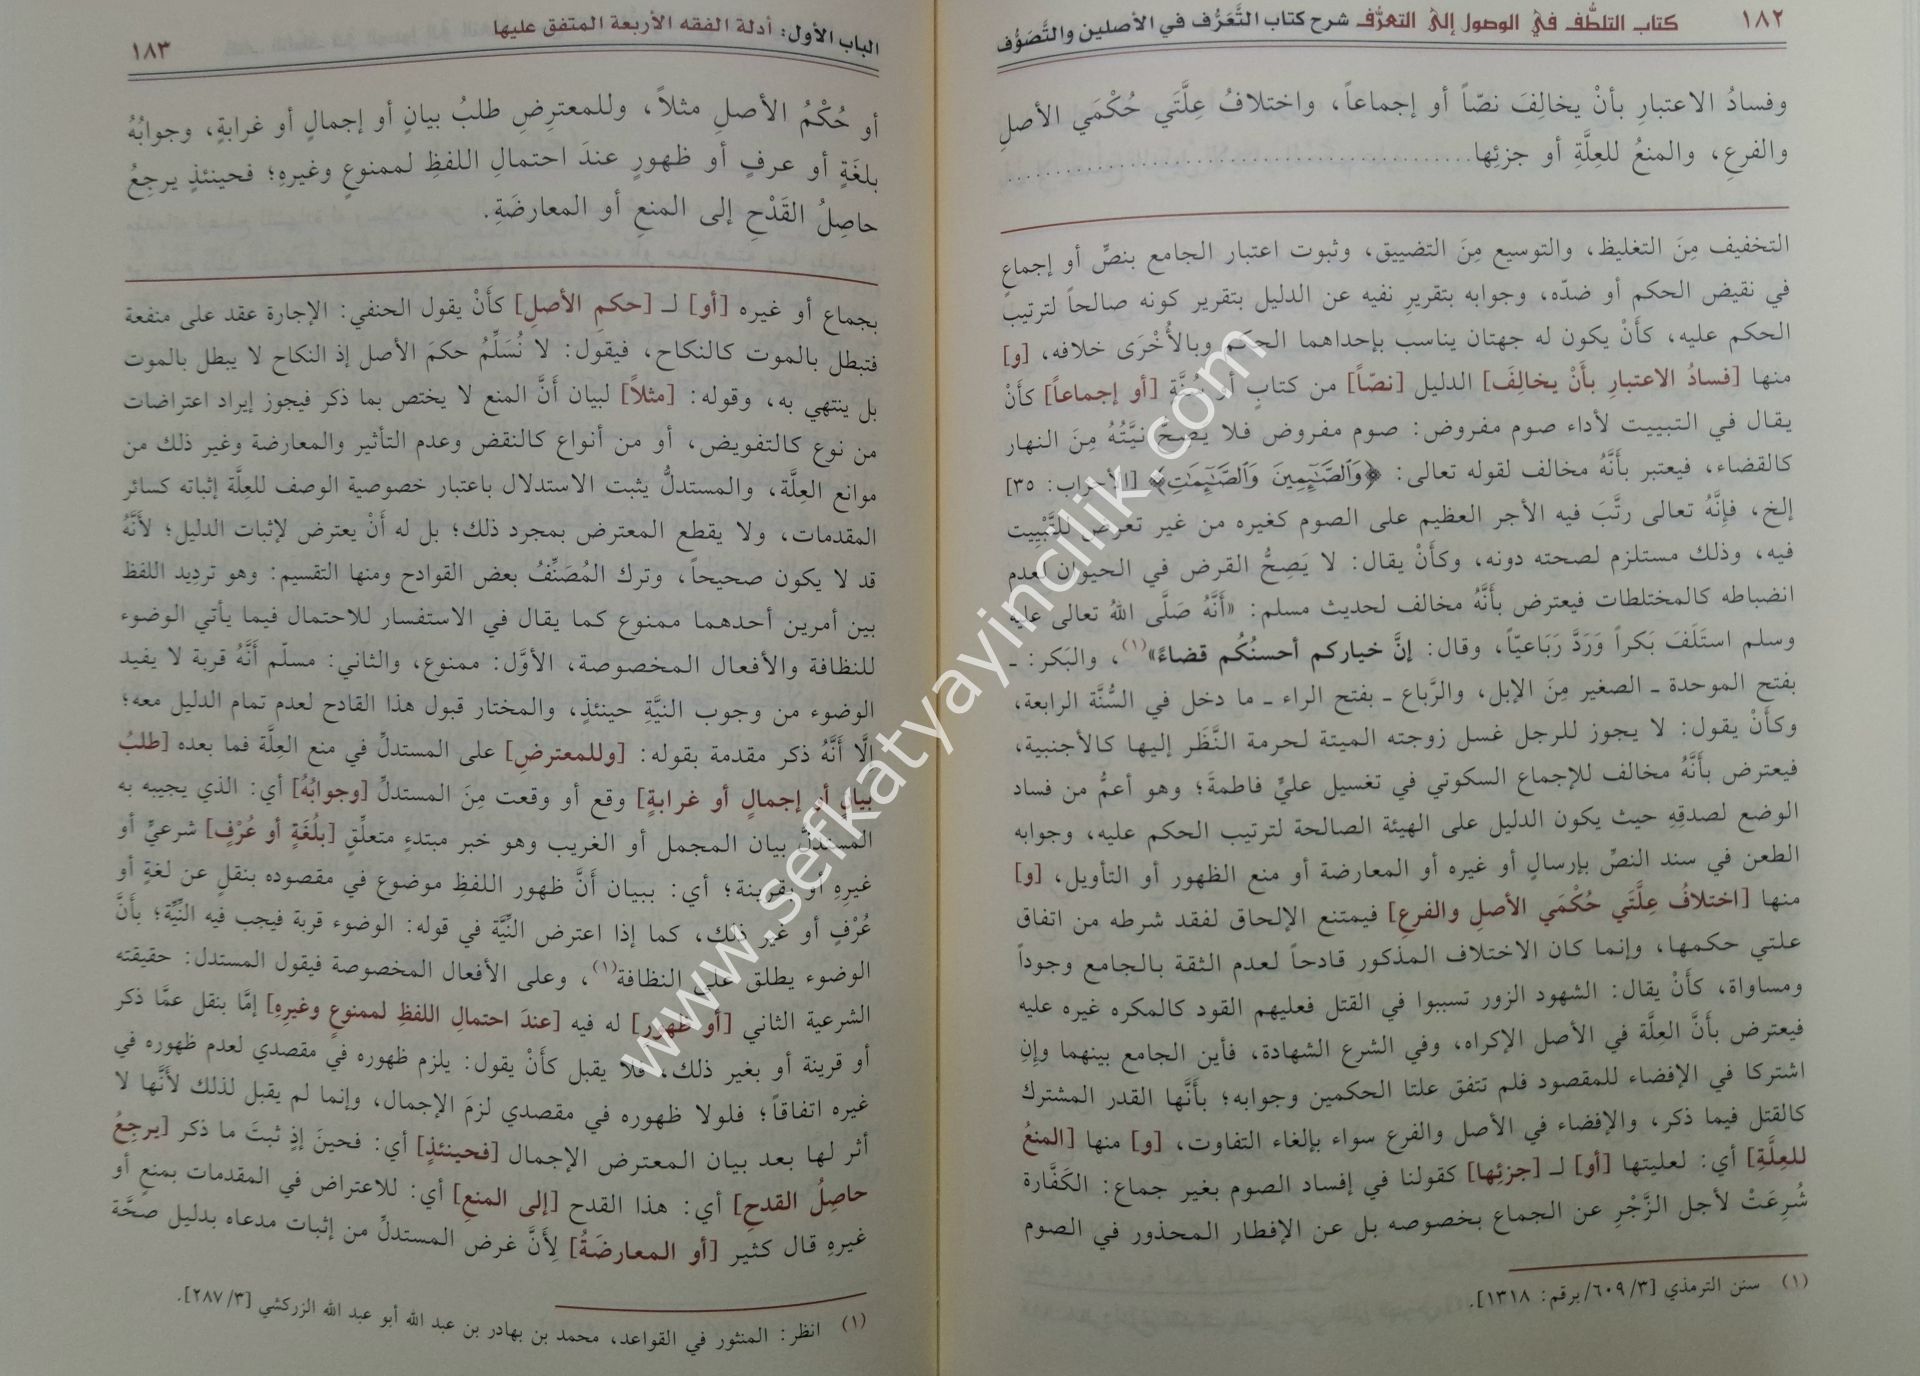 ١٨٢
كتاب التلطُّف في الوصول إلى التعرُّف شرح كتاب التَّعَرُّف في الأصلين والتَّصَوُّف
وفسادُ الاعتبارِ بأنْ يخالِفَ نصّاً أو إجماعاً، واختلافُ عِلَّتَي حُكْمَي الأصلِ
والفرعِ، والمنعُ للعِلَّةِ أو جزئِها
التخفيف مِنَ التغليظ، والتوسيع مِنَ التضييق، وثبوت اعتبار الجامع بنصٍّ أو إجماعٍ
في نقيض الحكم أو ضدّه، وجوابه بتقريرِ نفيه عن الدليل بتقرير كونه صالحاً لترتيب
الحكم عليه، كَأَنْ يكون له جهتان يناسب بإحداهما الحكم وبالأُخْرَى خلافه، [و]
منها [فسادُ الاعتبارِ بأَنْ يخالِفَ] الدليل [نصّاً] من كتابٍ أو سُنَّة [أو إجماعاً] كأنْ
يقال في التبييت لأداء صوم مفروض: صوم مفروض فلا يصحّ نيَّتُهُ مِنَ النهار
كالقضاء، فيعتبر بأنَّهُ مخالف لقوله تعالى: ﴿وَالصَّائِمِينَ وَالصَّائِمَاتِ﴾ [الأحزاب: ٣٥]
إلخ، فإنَّهُ تعالى رتَّبَ فيه الأجر العظيم على الصوم كغيره من غير تعرض للتَّبْيِيت
فيه، وذلك مستلزم لصحته دونه، وكأنْ يقال: لا يَصِحُّ القرض في الحيوان لعدم
انضباطه كالمختلطات فيعترض بأنَّهُ مخالف لحديث مسلم: «أَنَّهُ صَلَّى اللهُ تعالى عليه
وسلم استَلَفَ بَكراً وَرَدَّ رَبَاعيّاً، وقال: إنَّ خياركم أحسنُكُم قضاءً»(١)، والبَكر: ـ
بفتح الموحدة ـ الصغير مِنَ الإبل، والرَّباع ـ بفتح الراء ـ ما دخل في السُّنَّة الرابعة،
وكأنْ يقول: لا يجوز للرجل غسل زوجته الميتة لحرمة النَّظَر إليها كالأجنبية،
فيعترض بأنَّهُ مخالف للإجماع السكوتي في تغسيل عليٍّ فاطمةَ؛ وهو أعمُّ من فساد
الوضع لصدقِهِ حيث يكون الدليل على الهيئة الصالحة لترتيب الحكم عليه، وجوابه
الطعن في سند النصِّ بإرسالٍ أو غيره أو المعارضة أو منع الظهور أو التأويل، [و]
منها [اختلافُ عِلَّتَي حُكْمَي الأصلِ والفرعِ] فيمتنع الإلحاق لفقد شرطه من اتفاق
علتي حكمها، وإنما كان الاختلاف المذكور قادحاً لعدم الثقة بالجامع وجوداً
ومساواة، كأنْ يقال: الشهود الزور تسببوا في القتل فعليهم القود كالمكره غيره عليه
فيعترض بأنَّ العِلَّة في الأصل الإكراه، وفي الشرع الشهادة، فأين الجامع بينهما وإنِ
اشتركا في الإفضاء للمقصود فلم تتفق علتا الحكمين وجوابه؛ بأنَّها القدر المشترك
كالقتل فيما ذكر، والإفضاء في الأصل والفرع سواء بإلغاء التفاوت، [و] منها [المنعُ
للعِلَّةِ] أي: لعليتها [أو] لـ [جزئِها] كقولنا في إفساد الصوم بغير جماع: الكَفَّارة
شُرِعَتْ لأجل الزَّجْرِ عن الجماع بخصوصه بل عن الإفطار المحذور في الصوم
(١) سنن الترمذي [٣/٦٠٩/برقم: ١٣١٨].
الباب الأول: أدلة الفقه الأربعة المتفق عليها
١٨٣
أو حُكْمُ الأصلِ مثلاً، وللمعترِضِ طلبُ بيانٍ أو إجمالٍ أو غرابةٍ، وجوابُهُ
بلغَةٍ أو عرفٍ أو ظهورٍ عندَ احتمالِ اللفظِ لممنوعٍ وغيرِهِ؛ فحينئذٍ يرجِعُ
حاصِلُ القَدْحِ إلى المنعِ أو المعارضَةِ.
بجماع أو غيره [أو] لـ [حكمِ الأصلِ] كَأَنْ يقول الحنفي: الإجارة عقد على منفعة
فتبطل بالموت كالنكاح، فيقول: لا نُسَلِّمُ حكمَ الأصل إذ النكاح لا يبطل بالموت
بل ينتهي به، وقوله: [مثلاً] لبيان أَنَّ المنع لا يختص بما ذكر فيجوز إيراد اعتراضات
من نوع كالتفويض، أو من أنواع كالنقض وعدم التأثير والمعارضة وغير ذلك من
موانع العِلَّة، والمستدلُّ يثبت الاستدلال باعتبار خصوصية الوصف للعِلَّة إثباته كسائر
المقدمات، ولا يقطع المعترض بمجرد ذلك؛ بل له أنْ يعترض لإثبات الدليل؛ لأنَّهُ
قد لا يكون صحيحاً، وترك المُصَنِّفُ بعض القوادح ومنها التقسيم: وهو ترديد اللفظ
بين أمرين أحدهما ممنوع كما يقال في الاستفسار للاحتمال فيما يأتي الوضوء
للنظافة والأفعال المخصوصة، الأوَّل: ممنوع، والثاني: مسلّم أنَّهُ قربة لا يفيد
الوضوء من وجوب النيَّةِ حينئذٍ، والمختار قبول هذا القادح لعدم تمام الدليل معه؛
إلَّا أنَّهُ ذكر مقدمة بقوله: [وللمعترضِ] على المستدلِّ في منع العِلَّة فما بعده [طلبُ
بيانٍ أو إجمالٍ أو غرابةٍ] وقع أو وقعت مِنَ المستدلِّ [وجوابُهُ] أي: الذي يجيبه به
المستدلُّ بيان المجمل أو الغريب وهو خبر مبتدءٍ متعلِّقٍ [بلُغَةٍ أو عُرْفٍ] شرعيٍّ أو
غيرِهِ أو بقرينة؛ أي: ببيان أنَّ ظهور اللفظِ موضوع في مقصوده بنقلٍ عن لغةٍ أو
عُرْفٍ أو غير ذلك، كما إذا اعترض النِّيَّة في قوله: الوضوء قربة فيجب فيه النيِّة؛ بأنَّ
الوضوء يطلق على النظافة(١)، وعلى الأفعال المخصوصة فيقول المستدل: حقيقته
الشرعية الثاني [أو ظهورٍ] له فيه [عندَ احتمالِ اللفظِ لممنوعٍ وغيرِهِ] إمَّا بنقل عمَّا ذكر
أو قرينة أو بغير ذلك، فلا يقبل كَأَنْ يقول: يلزم ظهوره في مقصدي لعدم ظهوره في
غيره اتفاقاً؛ فلولا ظهوره في مقصدي لزمَ الإجمال، وإنما لم يقبل لذلك لأنَّها لا
أثر لها بعد بيان المعترض الإجمال [فحينئذٍ] أي: فحينَ إذٍ ثبتَ ما ذكر [يرجِعُ
حاصِلُ القدحِ] أي: هذا القدح [إلى المنعِ] أي: للاعتراض في المقدمات بمنعٍ أو
غيرِهِ قال كثير [أو المعارضَةُ] لأِنَّ غرض المستدلِّ من إثبات مدعاه بدليل صحَّة
(١) انظر: المنثور في القواعد، محمد بن بهادر بن عبد الله أبو عبد الله الزركشي [٣/٢٨٧].
www.sefkatyayincilik.com